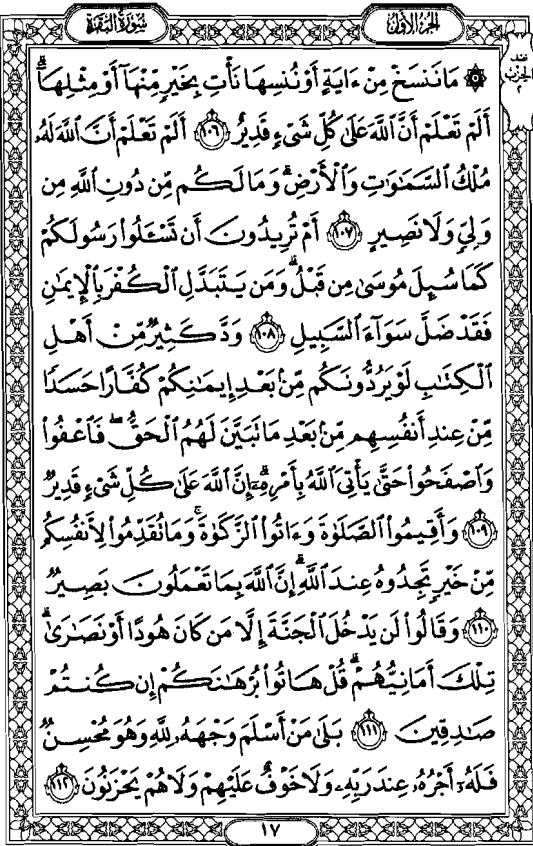 سُورَةُ البَقَرَةِ
الجُزءُ الأَوَّلُ
۞ مَا نَنسَخْ مِنْ ءَايَةٍ أَوْ نُنسِهَا نَأْتِ بِخَيْرٍ مِّنْهَآ أَوْ مِثْلِهَآۗ
أَلَمْ تَعْلَمْ أَنَّ ٱللَّهَ عَلَىٰ كُلِّ شَىْءٍ قَدِيرٌ ١٠٦ أَلَمْ تَعْلَمْ أَنَّ ٱللَّهَ لَهُۥ
مُلْكُ ٱلسَّمَٰوَٰتِ وَٱلْأَرْضِۗ وَمَا لَكُم مِّن دُونِ ٱللَّهِ مِن
وَلِىٍّ وَلَا نَصِيرٍ ١٠٧ أَمْ تُرِيدُونَ أَن تَسْـَٔلُوا۟ رَسُولَكُمْ
كَمَا سُئِلَ مُوسَىٰ مِن قَبْلُۗ وَمَن يَتَبَدَّلِ ٱلْكُفْرَ بِٱلْإِيمَٰنِ
فَقَدْ ضَلَّ سَوَآءَ ٱلسَّبِيلِ ١٠٨ وَدَّ كَثِيرٌ مِّنْ أَهْلِ
ٱلْكِتَٰبِ لَوْ يَرُدُّونَكُم مِّنۢ بَعْدِ إِيمَٰنِكُمْ كُفَّارًا حَسَدًا
مِّنْ عِندِ أَنفُسِهِم مِّنۢ بَعْدِ مَا تَبَيَّنَ لَهُمُ ٱلْحَقُّۖ فَٱعْفُوا۟
وَٱصْفَحُوا۟ حَتَّىٰ يَأْتِىَ ٱللَّهُ بِأَمْرِهِۦٓۗ إِنَّ ٱللَّهَ عَلَىٰ كُلِّ شَىْءٍ قَدِيرٌ
١٠٩ وَأَقِيمُوا۟ ٱلصَّلَوٰةَ وَءَاتُوا۟ ٱلزَّكَوٰةَۚ وَمَا تُقَدِّمُوا۟ لِأَنفُسِكُم
مِّنْ خَيْرٍ تَجِدُوهُ عِندَ ٱللَّهِۗ إِنَّ ٱللَّهَ بِمَا تَعْمَلُونَ بَصِيرٌ
١١٠ وَقَالُوا۟ لَن يَدْخُلَ ٱلْجَنَّةَ إِلَّا مَن كَانَ هُودًا أَوْ نَصَٰرَىٰۗ
تِلْكَ أَمَانِيُّهُمْۗ قُلْ هَاتُوا۟ بُرْهَٰنَكُمْ إِن كُنتُمْ
صَٰدِقِينَ ١١١ بَلَىٰ مَنْ أَسْلَمَ وَجْهَهُۥ لِلَّهِ وَهُوَ مُحْسِنٌ
فَلَهُۥٓ أَجْرُهُۥ عِندَ رَبِّهِۦ وَلَا خَوْفٌ عَلَيْهِمْ وَلَا هُمْ يَحْزَنُونَ ١١٢
١٧